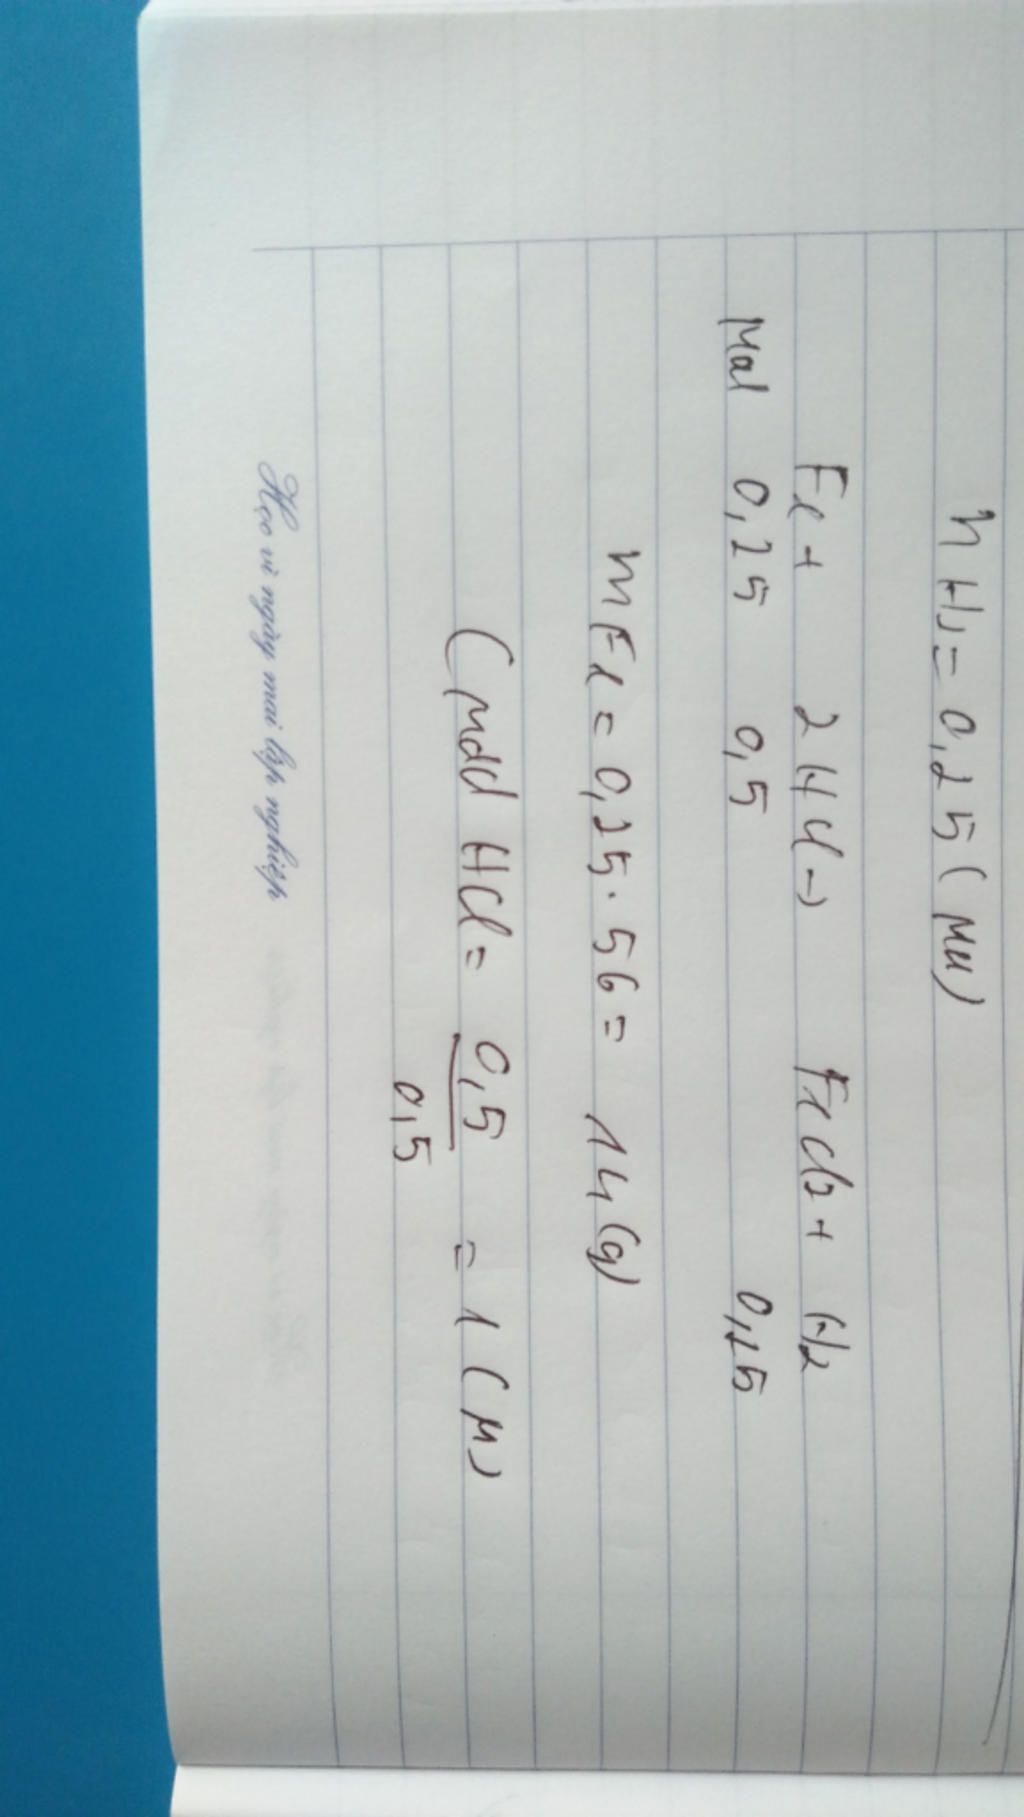 n H2 = 0,25 (mol)
Fe + 2HCl -> FeCl2 + H2
Mol 0,25 0,5 0,25
mFe = 0,25 . 56 = 14 (g)
CMdd HCl = 0,5 = 1 (M)
0,5
Học vì ngày mai lập nghiệp